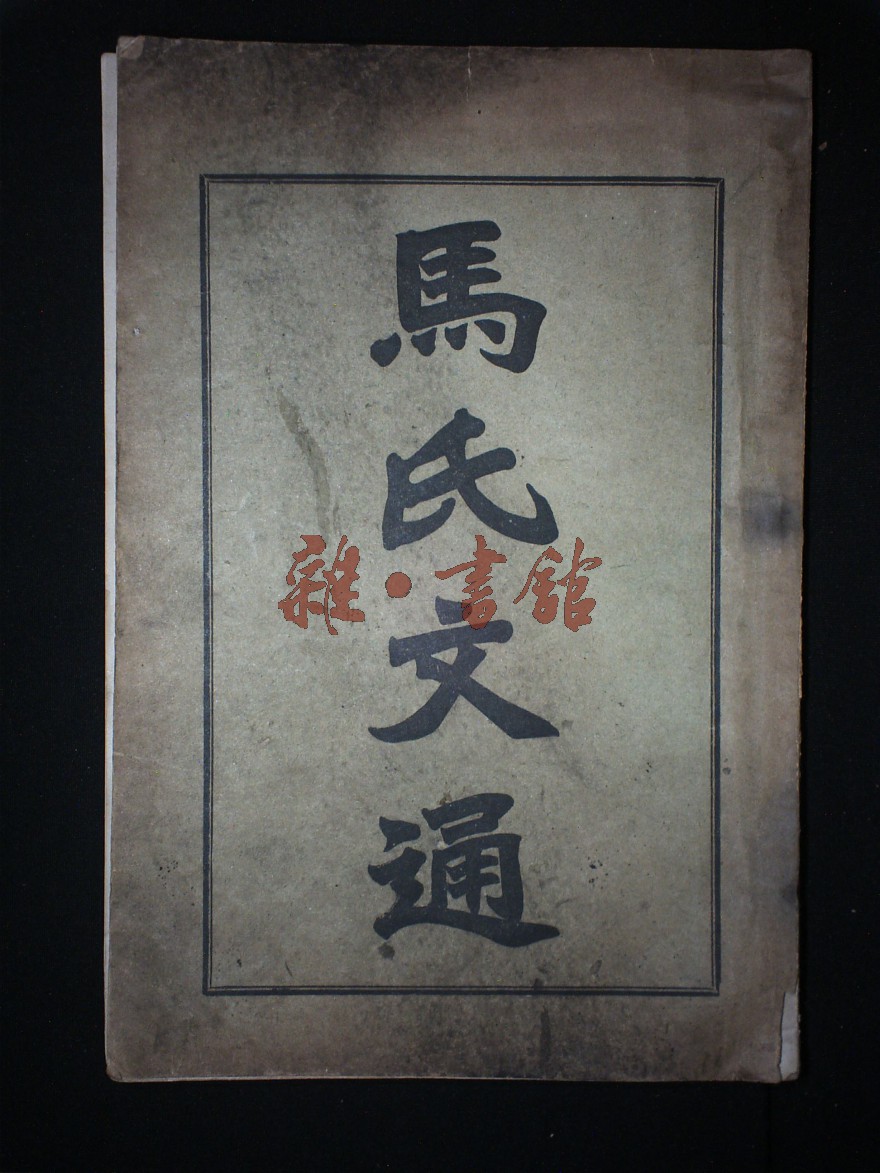 馬氏文通
雜·書館